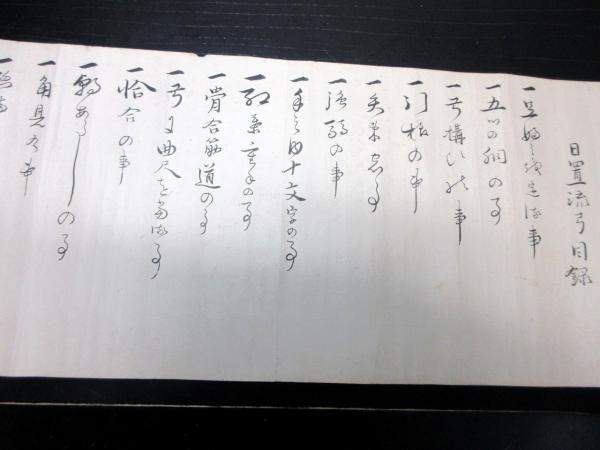 日置流弓目録
一足踏 定 事
一五ツの胴の事
一弓構 事
一打起の事
一矢束 事
一強弱の事
一手之内十文字の事
一紅葉重の事
一骨合筋道の事
一弓に曲尺を当る事
一恰合の事
一朝あらしの事
一角見之事
一